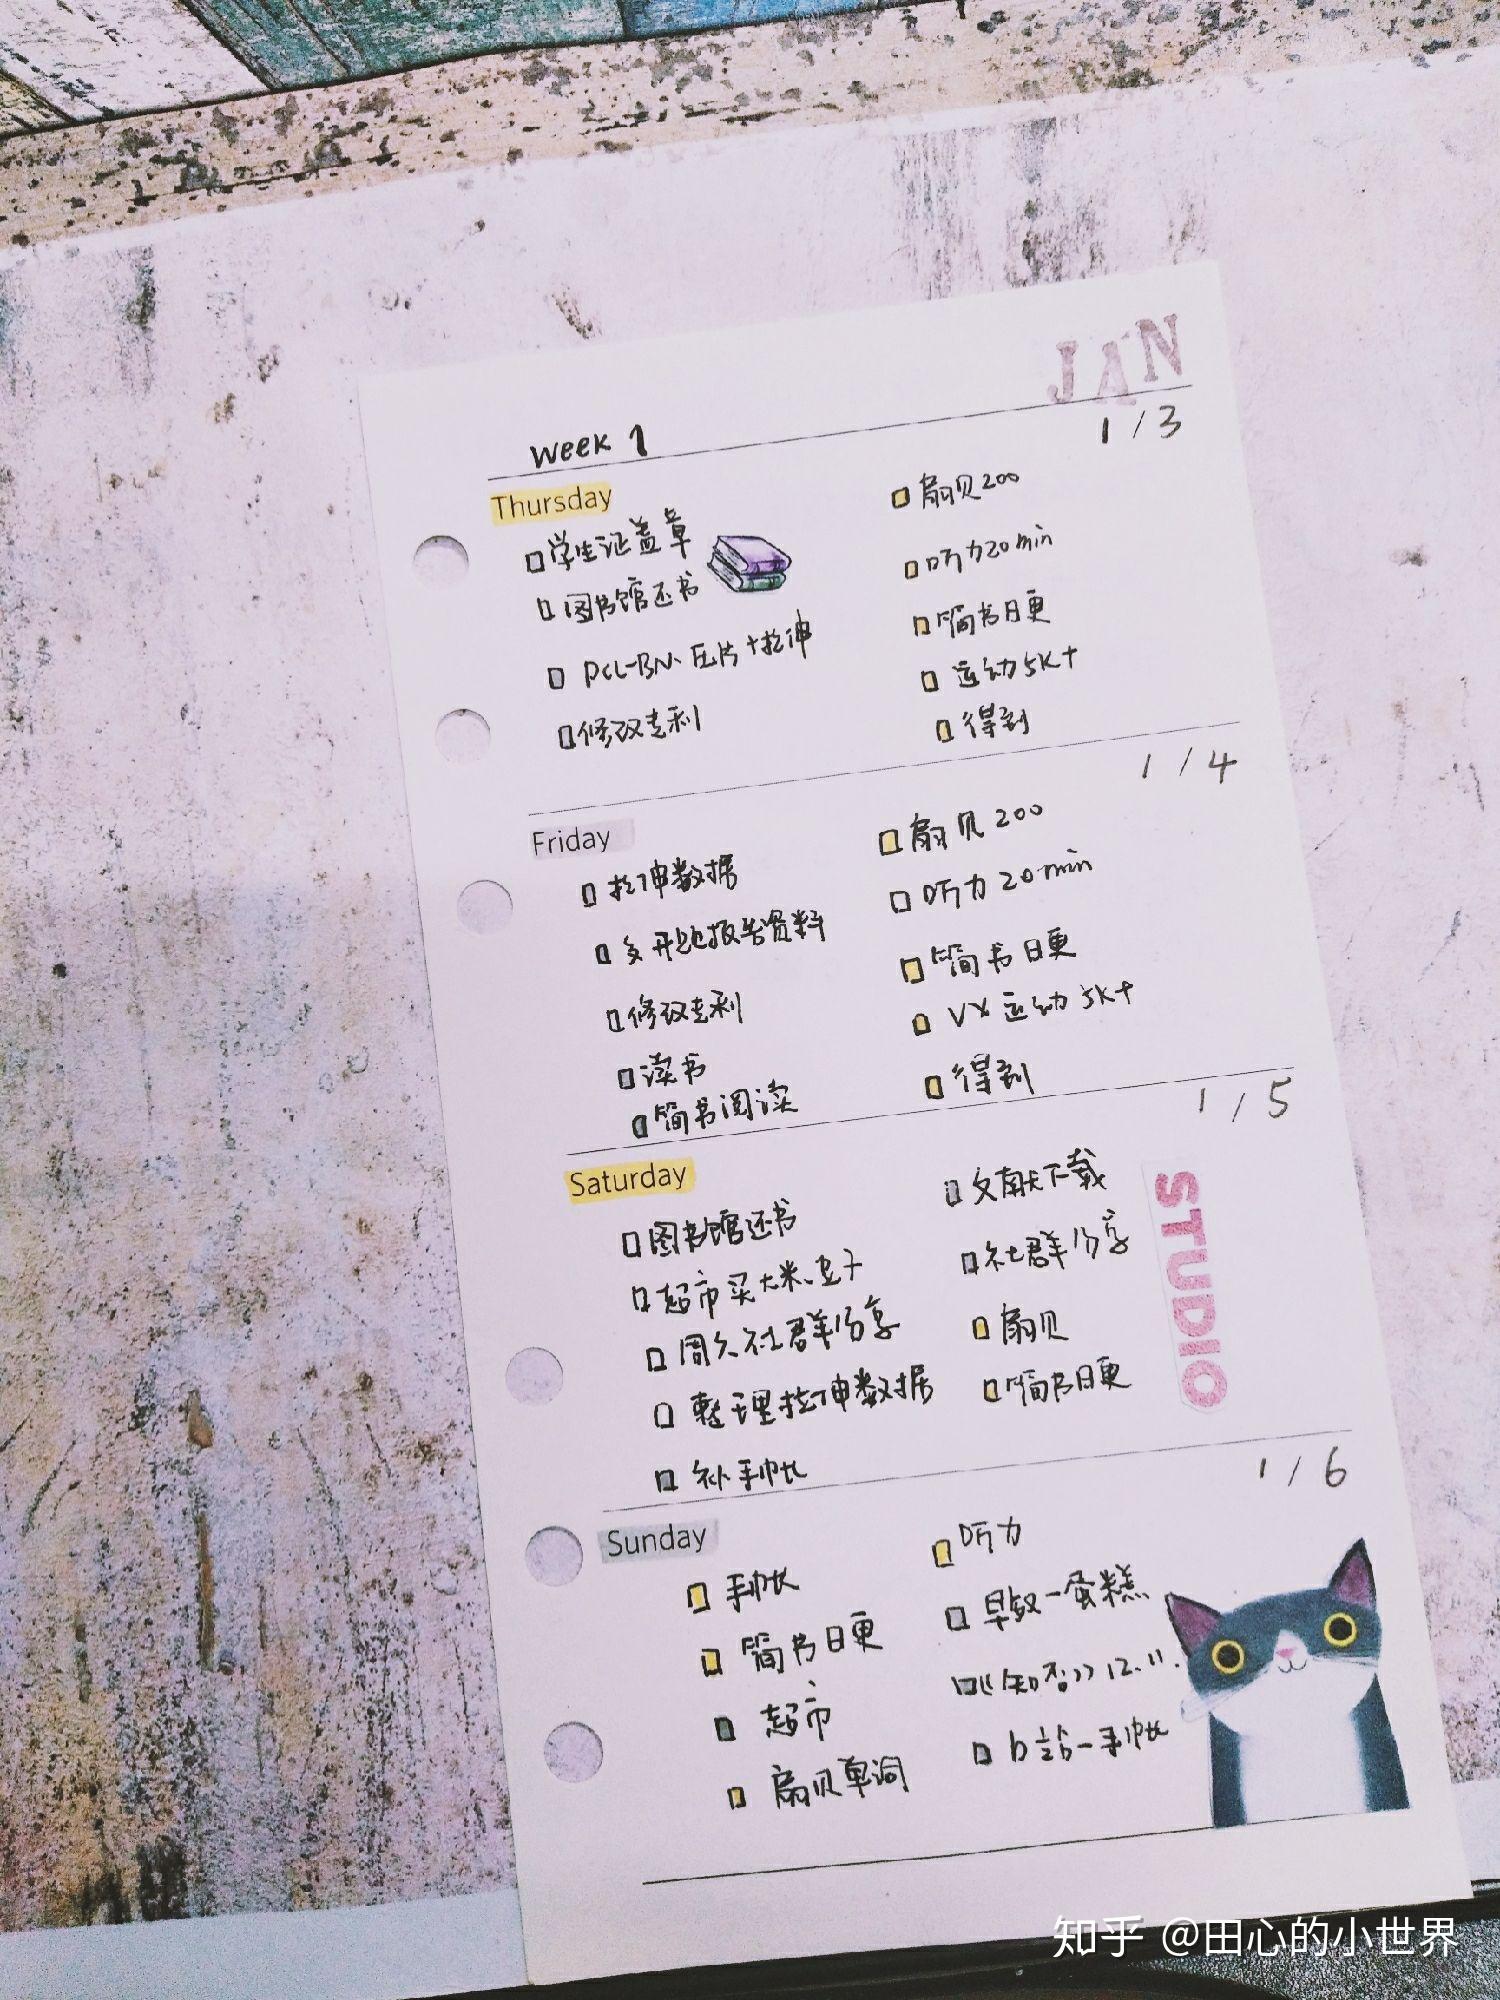 JAN
week 1
1/3
Thursday
学生证盖章
图书馆还书
PCL-BN、压片+拉伸
修改专利
扇贝200
听力20min
简书日更
运动5K+
得到
1/4
Friday
拉伸数据
开题报告资料
修改专利
读书
简书阅读
扇贝200
听力20min
简书日更
VX运动5K+
得到
1/5
Saturday
图书馆还书
超市买大米、豆子
周久社群分享
整理拉伸数据
补手帐
文献下载
社群分享
扇贝
简书日更
STUDIO
1/6
Sunday
手帐
简书日更
超市
扇贝单词
听力
早饭一蛋糕
知否>>12.11.
b站一手帐
知乎 @田心的小世界